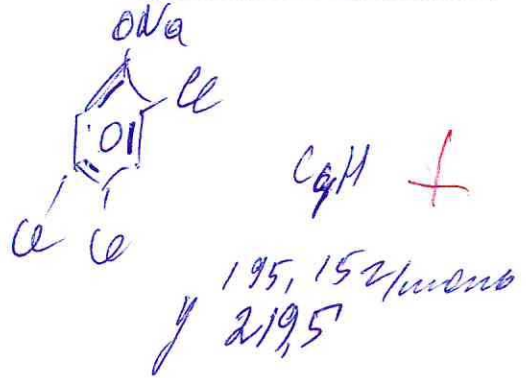 ONa
Cl
O
Cl Cl
+
195,15 г/моль
у 219,5